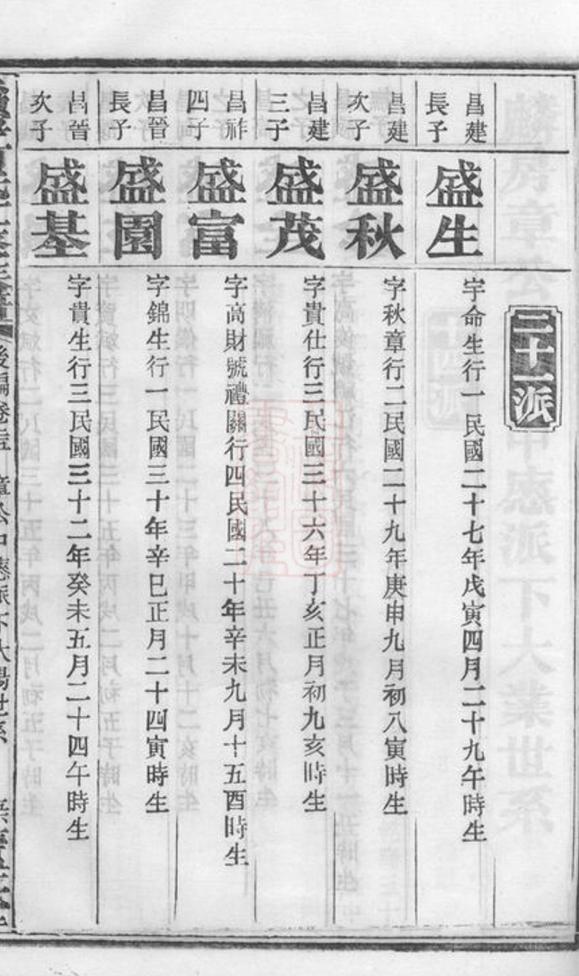 三十一派
昌建長子
盛生
字命生行一民國二十七年戊寅四月二十九午時生
昌建次子
盛秋
字秋章行二民國二十九年庚申九月初八寅時生
昌建三子
盛茂
字貴仕行三民國三十六年丁亥正月初九亥時生
昌祚四子
盛富
字高財號禮關行四民國二十年辛未九月十五酉時生
昌晉長子
盛園
字錦生行一民國三十年辛巳正月二十四寅時生
昌晉次子
盛基
字貴生行三民國三十二年癸未五月二十四午時生
後編卷